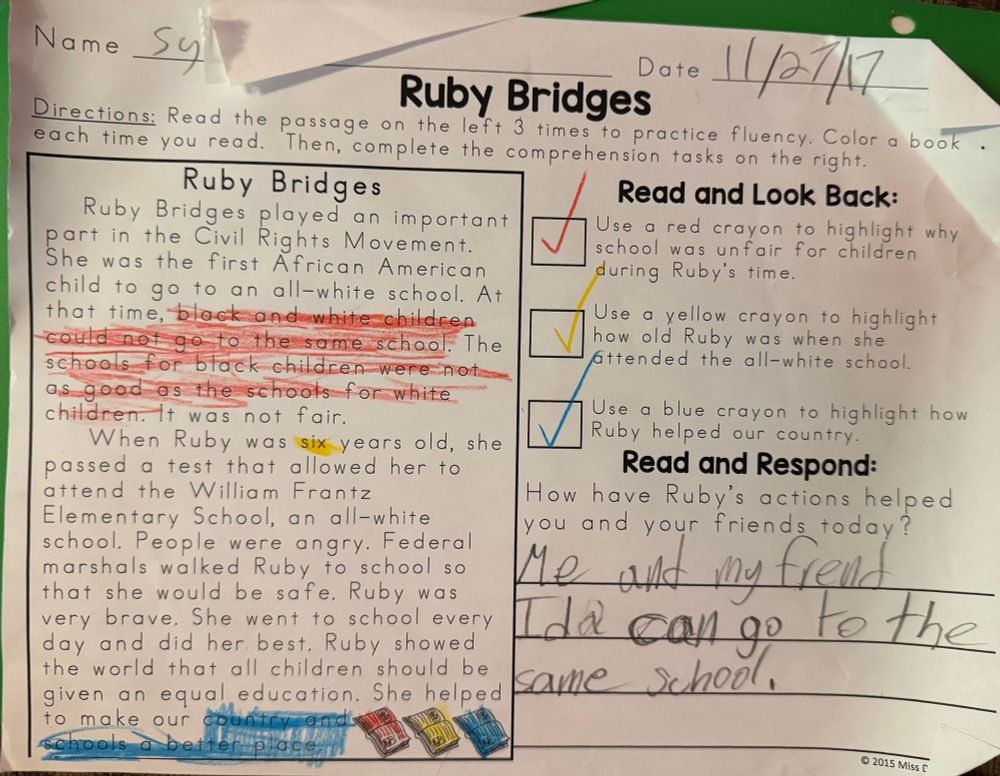 Name Sy
Date 11/27/17
Ruby Bridges
Directions: Read the passage on the left 3 times to practice fluency. Color a book
each time you read. Then, complete the comprehension tasks on the right.
Ruby Bridges
Ruby Bridges played an important
part in the Civil Rights Movement.
She was the first African American
child to go to an all-white school. At
that time, black and white children
could not go to the same school. The
schools for black children were not
as good as the schools for white
children. It was not fair.
When Ruby was six years old, she
passed a test that allowed her to
attend the William Frantz
Elementary School, an all-white
school. People were angry. Federal
marshals walked Ruby to school so
that she would be safe. Ruby was
very brave. She went to school every
day and did her best. Ruby showed
the world that all children should be
given an equal education. She helped
to make our country and
schools a better place.
Read and Look Back:
Use a red crayon to highlight why
school was unfair for children
during Ruby's time.
Use a yellow crayon to highlight
how old Ruby was when she
attended the all-white school.
Use a blue crayon to highlight how
Ruby helped our country.
Read and Respond:
How have Ruby's actions helped
you and your friends today?
Me and my frend
Ida can go to the
same school.
© 2015 Miss